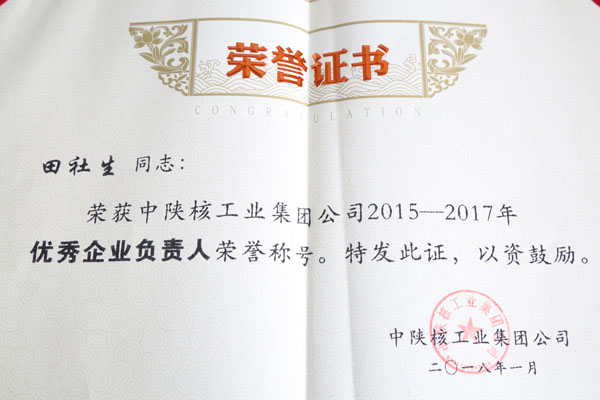 荣誉证书
CONGRATULATION
田社生 同志：
荣获中陕核工业集团公司2015—2017年
优秀企业负责人荣誉称号。特发此证，以资鼓励。
中陕核工业集团公司
二〇一八年一月